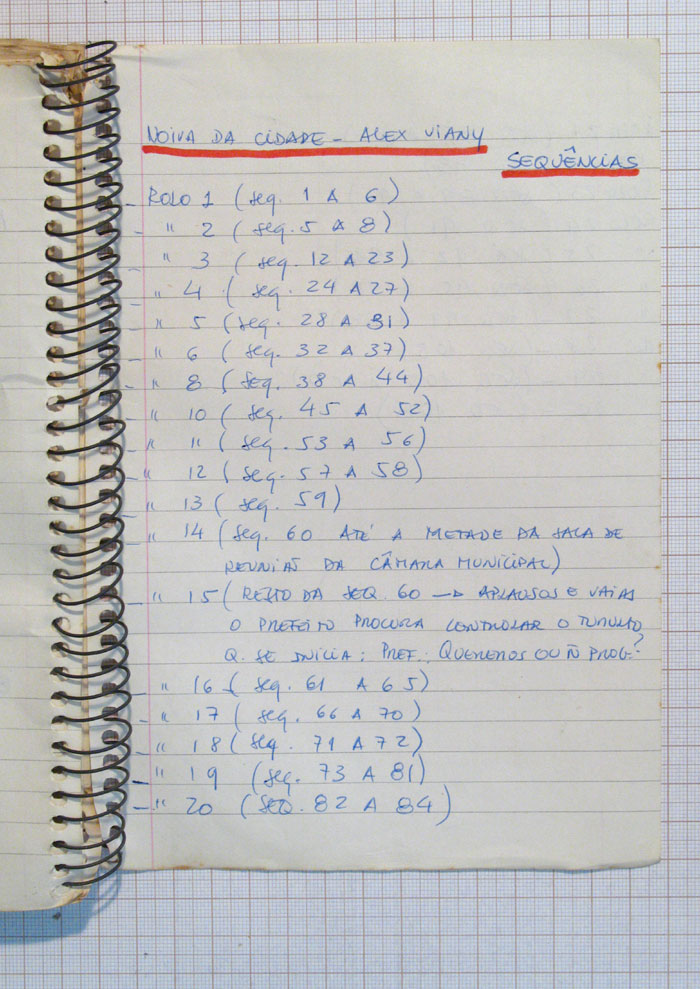 NOIVA DA CIDADE - ALEX VIANY
SEQUÊNCIAS
- ROLO 1 (seq. 1 A 6)
- " 2 (seq. 5 A 8)
- " 3 (seq. 12 A 23)
- " 4 (seq. 24 A 27)
- " 5 (seq. 28 A 31)
- " 6 (seq. 32 A 37)
- " 8 (seq. 38 A 44)
- " 10 (seq. 45 A 52)
- " 11 (seq. 53 A 56)
- " 12 (seq. 57 A 58)
- " 13 (seq. 59)
- " 14 (seq. 60 ATÉ A METADE DA SALA DE
REUNIÃO DA CÂMARA MUNICIPAL)
- " 15 (RESTO DA SEQ. 60 → APLAUSOS E VAIAS
O PREFEITO PROCURA CONTROLAR O TUMULTO
Q. SE INICIA: PREF.: QUEREMOS OU Ñ PROG.?
- " 16 (seq. 61 A 65)
- " 17 (seq. 66 A 70)
- " 18 (seq. 71 A 72)
- " 19 (seq. 73 A 81)
- " 20 (SEQ. 82 A 84)